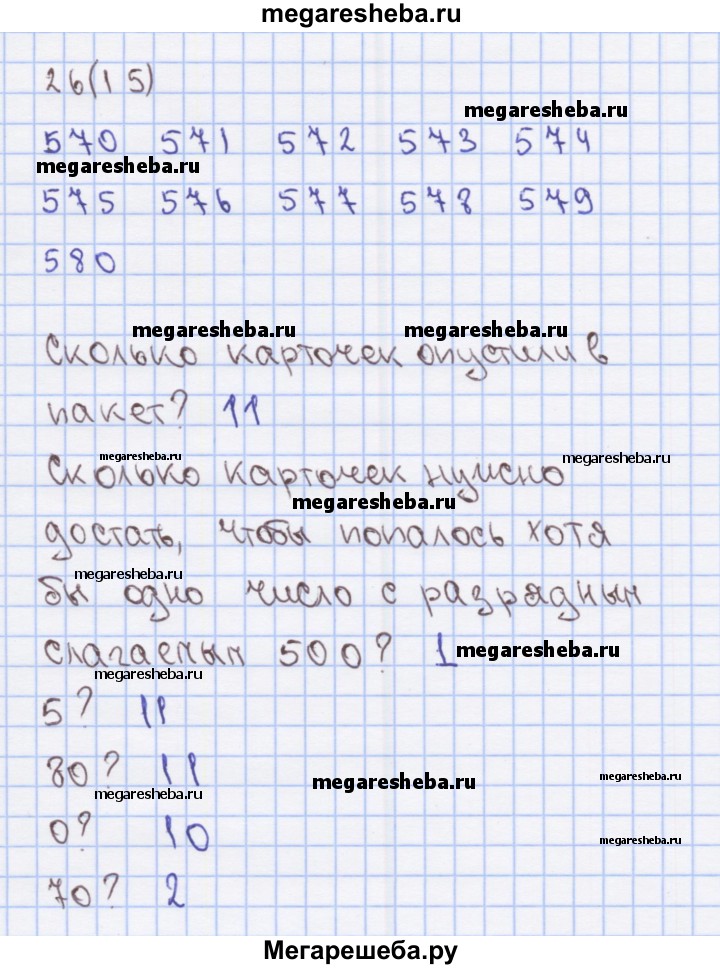 megaresheba.ru
26(15)
megaresheba.ru
570 571 572 573 574
megaresheba.ru
575 576 577 578 579
580
megaresheba.ru megaresheba.ru
Сколько карточек опустили в
пакет? 11
megaresheba.ru megaresheba.ru
Сколько карточек нужно
megaresheba.ru
достать, чтобы попалось хотя
megaresheba.ru
бы одно число с разрядным
слагаемым 500? 1 megaresheba.ru
megaresheba.ru
5? 11
80? 11 megaresheba.ru megaresheba.ru
megaresheba.ru
0? 10 megaresheba.ru
70? 2
Мегарешеба.ру